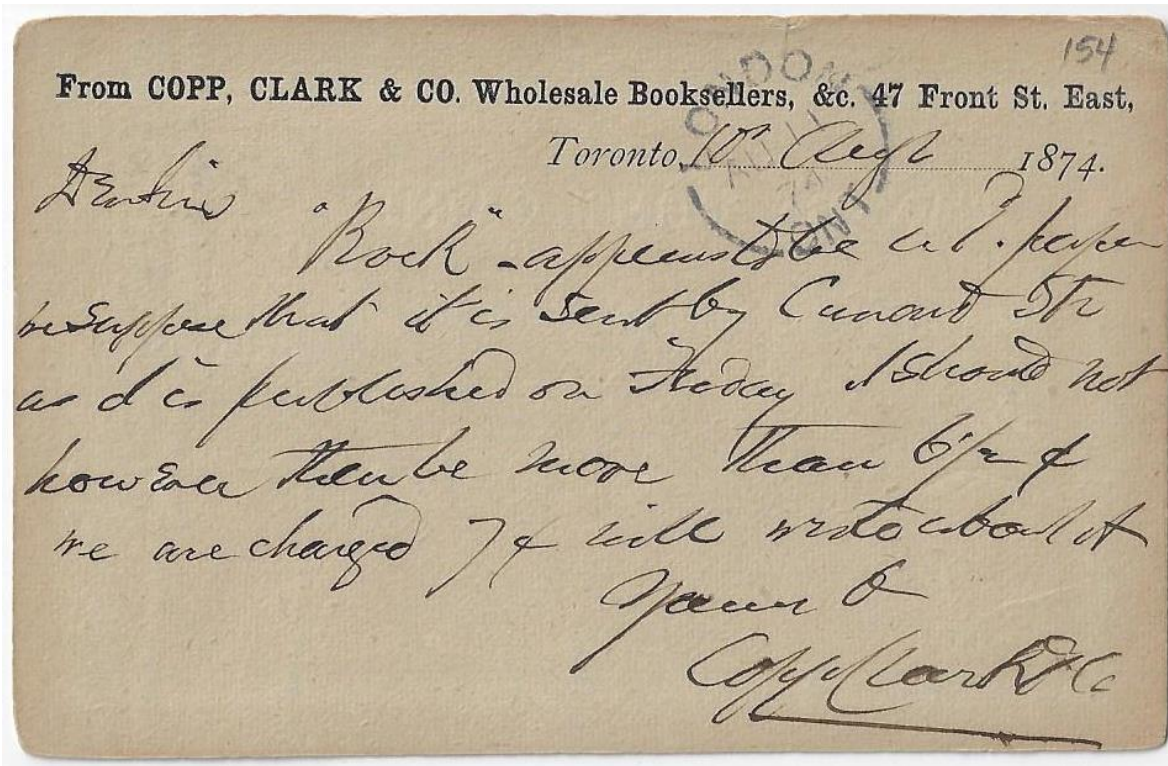 154
From COPP, CLARK & CO. Wholesale Booksellers, &c. 47 Front St. East,
Toronto, 10th Augt 1874.
LONDON
AU 11
74
ONT
Dear Sirs
"Rock" - appears to be a 1d. paper
we suppose that it is sent by Cunard Str
as it is published on Friday. It should not
however then be more than 6/2 &
we are charged 7/ & will write about it
Yours &
Copp Clark & Co